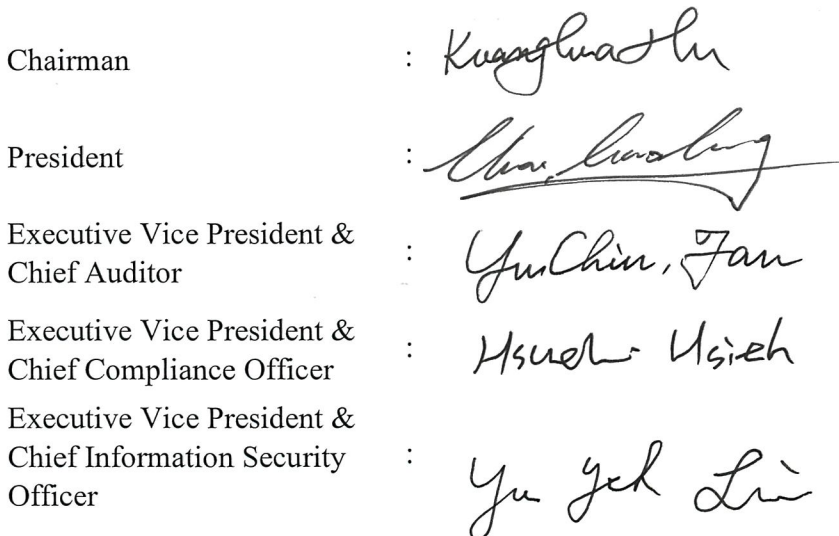 Chairman : Kuanghua Hu
President :
Executive Vice President &
Chief Auditor : YuChin, Fan
Executive Vice President &
Chief Compliance Officer : Hsieh
Executive Vice President &
Chief Information Security
Officer : Yu Yeh